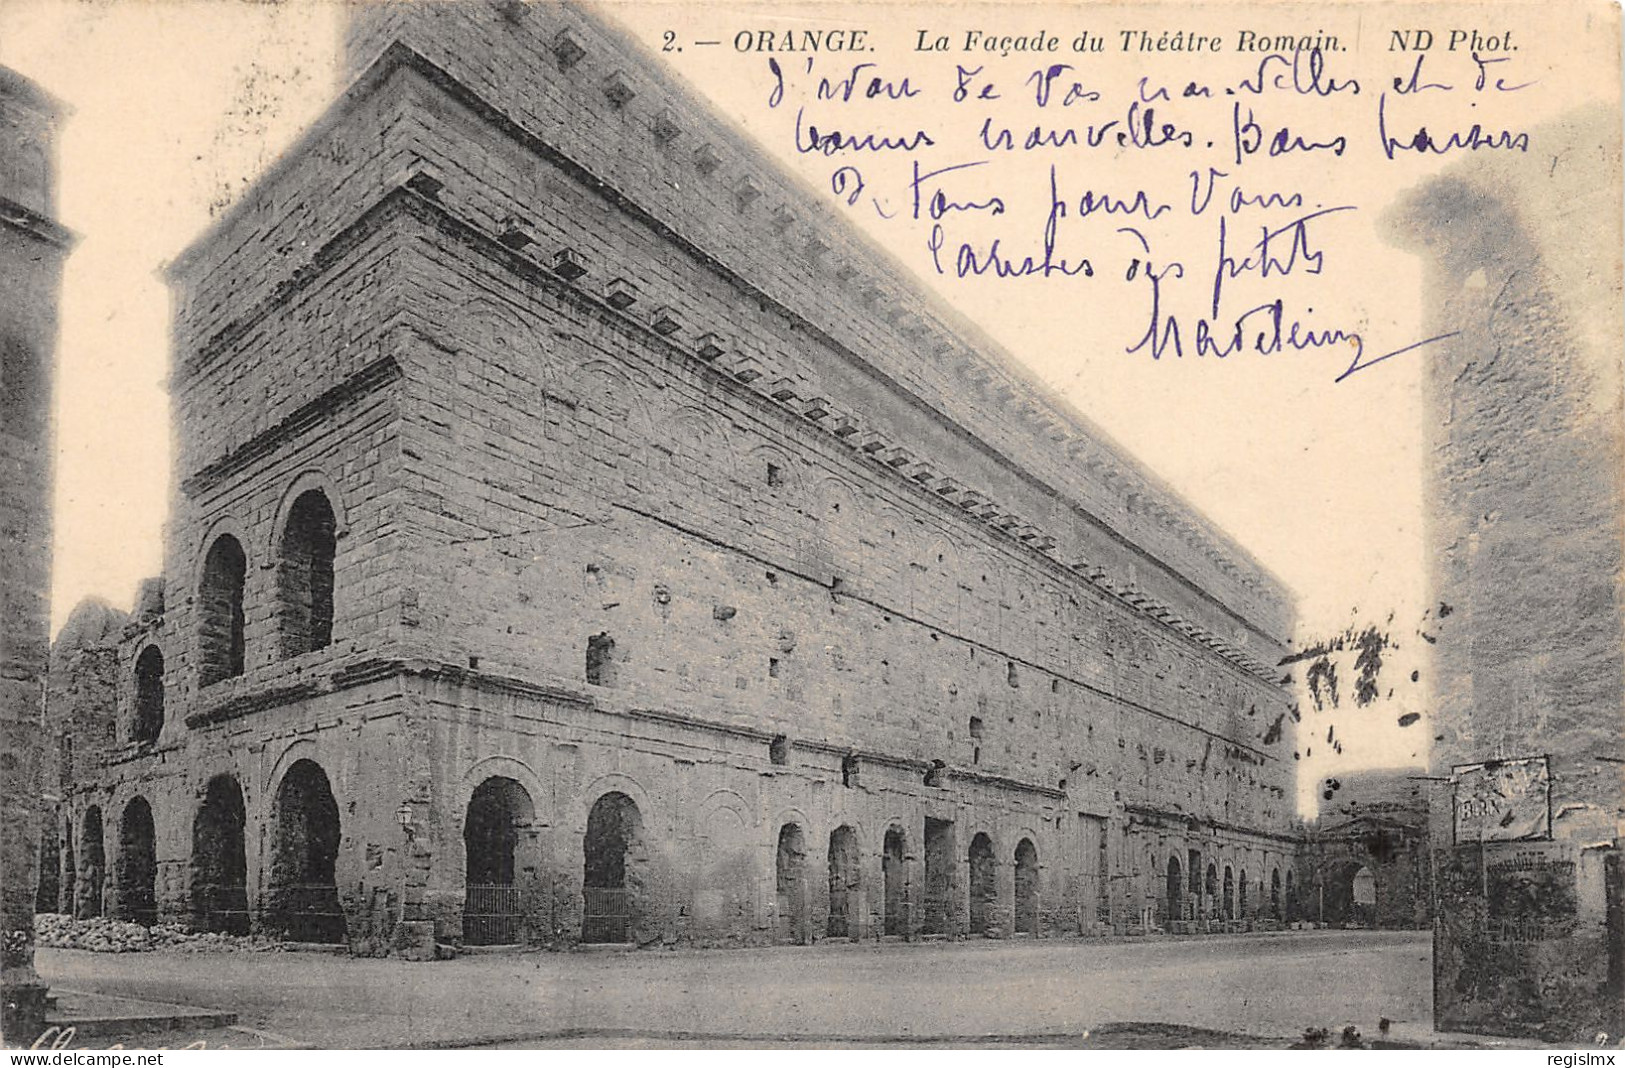 2. — ORANGE. La Façade du Théâtre Romain. ND Phot.
de Vos nouvelles et de
bonnes nouvelles. Bons baisers
De tous pour Vous.
Caresses des petits
Madeleine
delcampe.net
regislmx